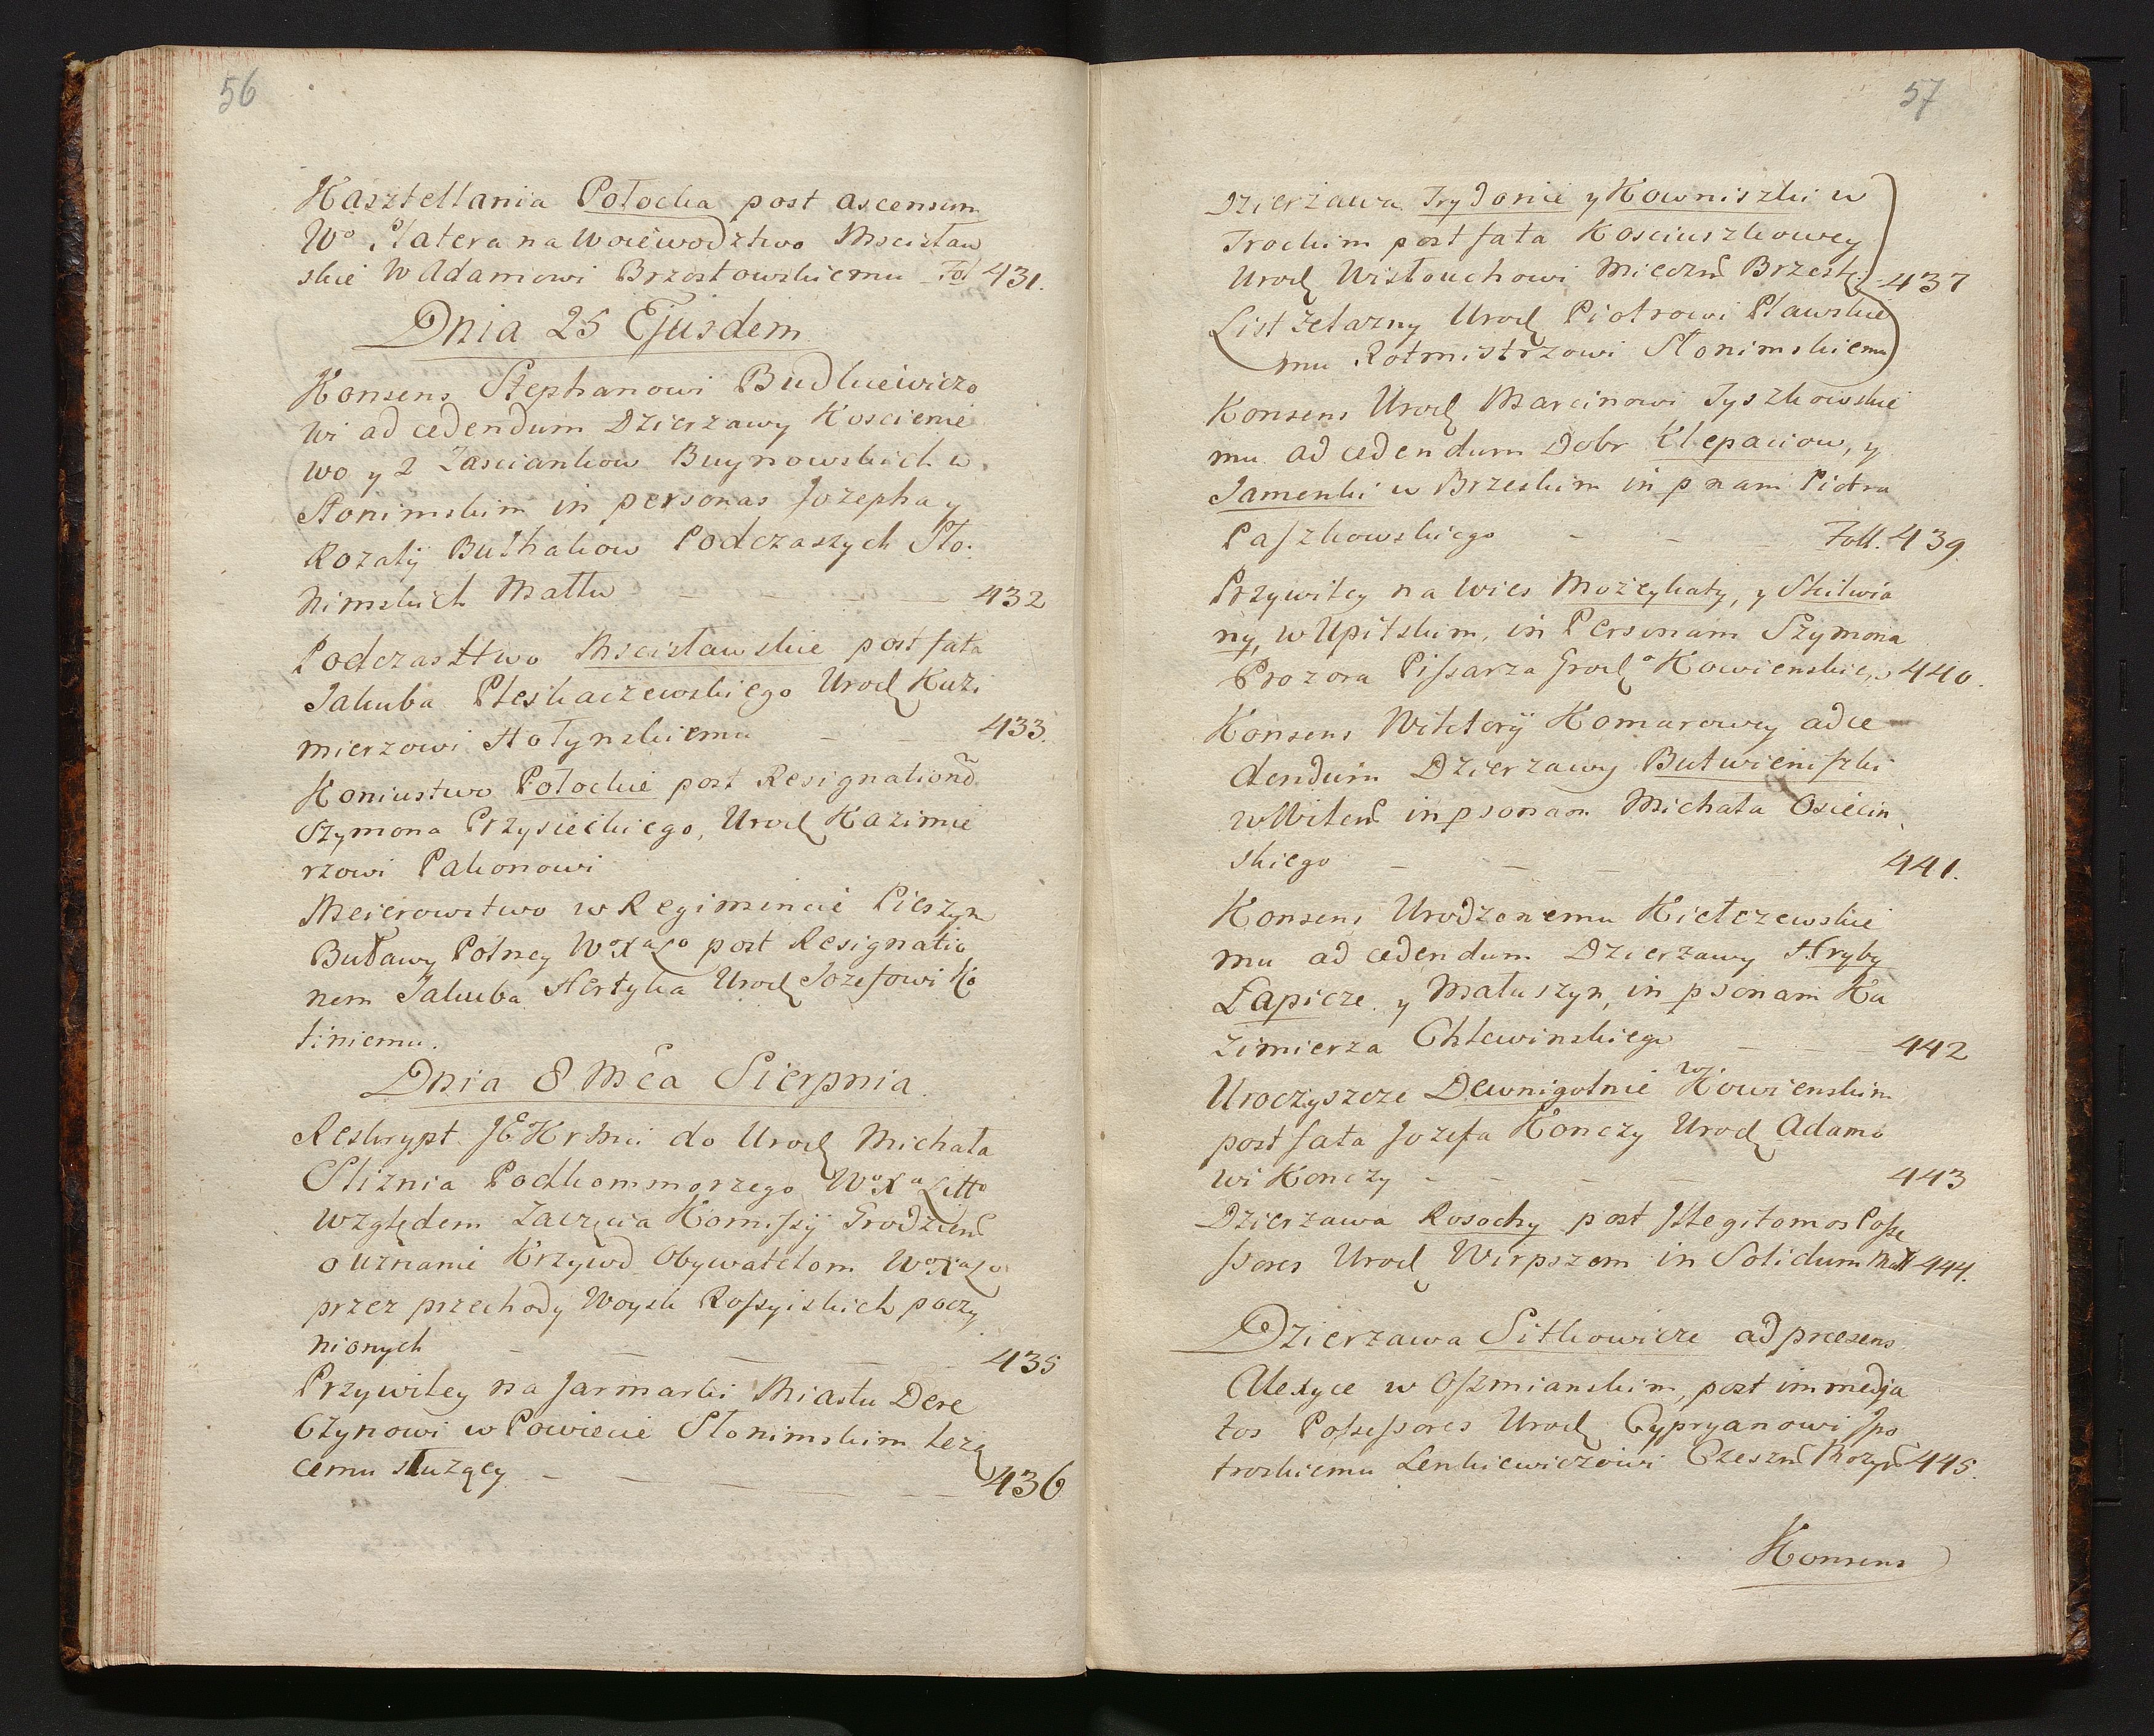 56
Kasztellania Połocka post ascensum
Wo Platera na Woiewodztwo Mscisław
skie W Adamowi Brzostowskiemu Fol 431.
Dnia 25 Ejusdem
Konsens Stephanowi Budkiewiczo
wi ad cedendum Dzierzawy Koscienie
wo y 2 Zasciankow Buynowskich w
Słonimskim in personas Jozepha y
Rozalij Buthakow Podczaszych Sło-
nimskich Małłu 432
Podczastwo Mscisławskie post fata
Jakuba Pleskaczewskiego Urod Kazi
mierzowi Hołynskiemu 433.
Koniustwo Połockie post Resignationẽ
Szymona Przysieckiego, Urod Kazimie
rzowi Pakonowi
Meierowstwo w Regimincie Pieszym
Buławy Polney Wo Xa Lo post Resignatio
nem Jakuba Hertyka Urod Jozefowi Ko
tiniemu.
Dnia 8 Mca Sierpnia
Reskrypt JEKrMci do Urod Michała
Sliznia Podkommorzego Wo Xa Litto
względem Zaczęcia Komissij Grodzień
o uznanie Krzywd Obywatelom Wo Xa Lo
przez przechody Woysk Rossyiskich poczy
nionych 435
Przywiley na Jarmarki Miastu Dere
czynowi w Powiecie Słonimskim leżą
cemu służący 436
57
Dzierżawa Trydanie y Kowniszki w
Trockim post fata Kosciuszkowey
Urod Wisłouchowi Mieczn Brzesk 437
List żelazny Urod Piotrowi Pławskie
mu Rotmistrzowi Słonimskiemu
Konsens Urod Marcinowi Tyszkowskie
mu ad cedendum Dobr Klepaciow, y
Jamenki w Brzeskim in pnam Piotra
Paszkowskiego Foll. 439
Przywiley na Wies Możeykaty, y Skilwia
ny, w Upitskim, in Personam Szymona
Prozora Pissarza Grod Kowienskiego 440.
Konsens Wiktorij Komarowey ad ce
dendum Dzierzawy Butwieniszki
w Wileń in psonam Michała Osiecin
skiego 441.
Konsens Urodzonemu Kiełczewskie
mu ad cedendum Dzierzawy Hryby
Łapicze y Matuszyn, in psonam Ka
zimierza Chlewinskiego 442
Uroczyszcze Dewnigolnie w Kowienskim
post fata Jozefa Konczy Urod Adamo
wi Konczy 443
Dzierzawa Rosochy post Illegitomos Posse
ssores Urod Wirpszom in Solidum Mał 444.
Dzierzawa Sitkowicze ad præsens
Alexyce w Oszmianskim, post immedja
tos Possessores Urod Cypryanowi Jno
troskiemu Lenkiewiczowi Czeszn Mozyr 445.
Konsens